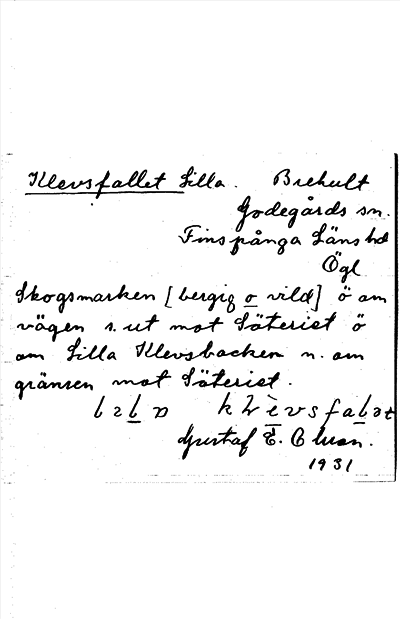 Klevsfallet Lilla. Brehult
Godegårds sn.
Finspånga Läns hd
Ögl
Skogsmarken [bergig o vild] ö om
vägen s. ut mot Säteriet ö
om Lilla Klevsbacken n. om
gränsen mot Säteriet.
Gustaf E.
1931